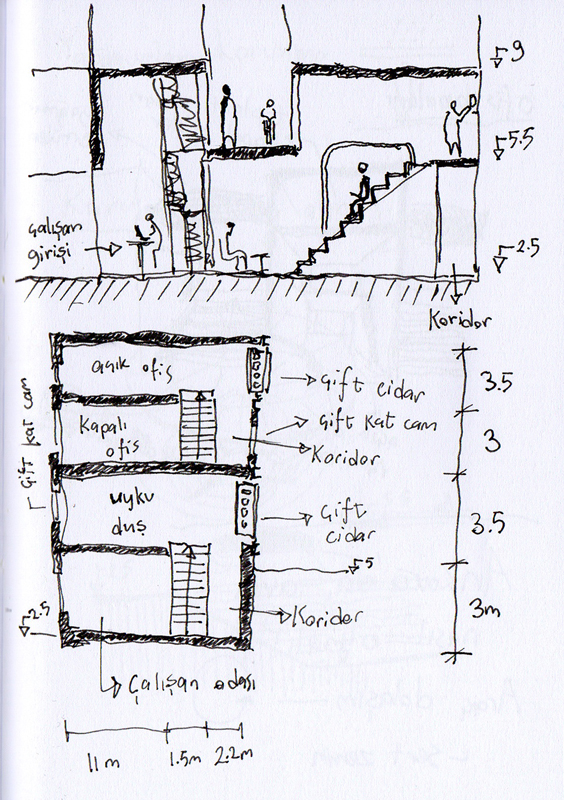 9
5.5
2.5
Çalışan
girişi
Koridor
açık ofis
Çift cidar
3.5
Çift kat cam
Kapalı
ofis
Çift kat cam
Koridor
3
uyku
duş
Çift
cidar
3.5
5
2.5
Koridor
3m
Çalışan odası
11m
1.5m
2.2m